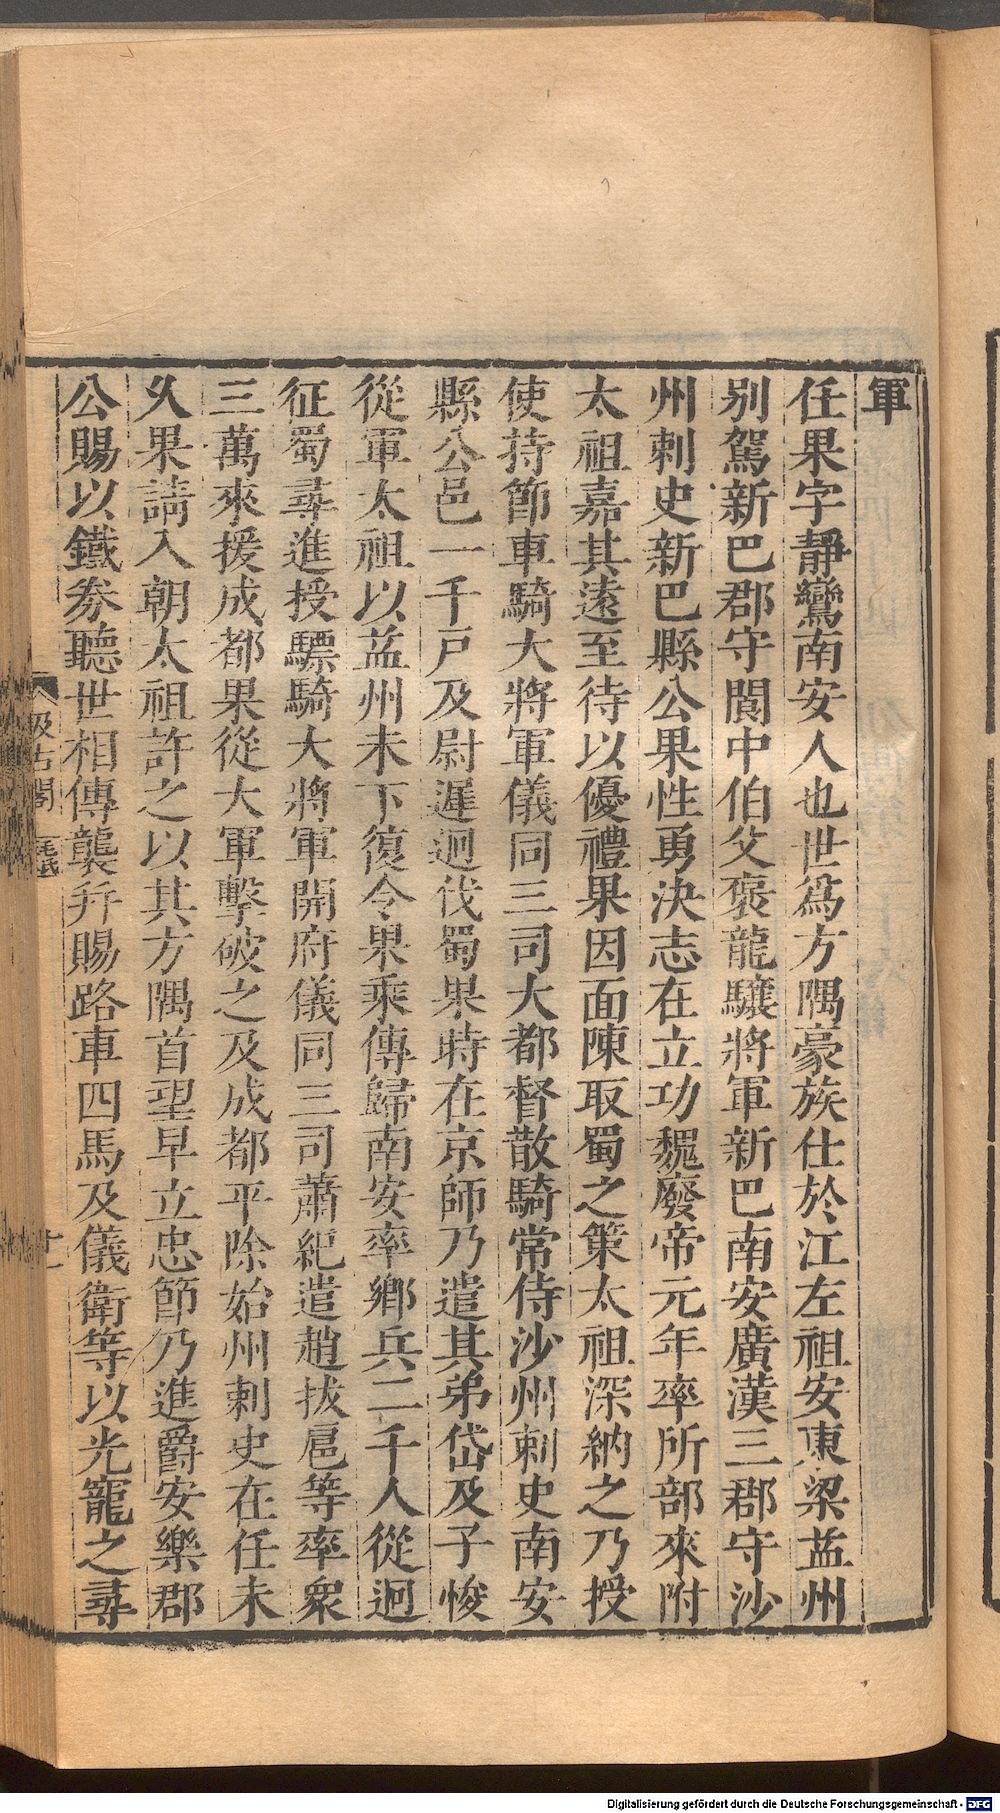 軍
任果字靜鸞南安人也世爲方隅豪族仕於江左祖安東梁益州
别駕新巴郡守閬中伯父褒龍驤將軍新巴南安廣漢三郡守沙
州刺史新巴縣公果性勇決志在立功魏廢帝元年率所部來附
太祖嘉其遠至待以優禮果因面陳取蜀之策太祖深納之乃授
使持節車騎大將軍儀同三司大都督散騎常侍沙州刺史南安
縣公邑一千戸及尉遲迥伐蜀果時在京師乃遣其弟岱及子悛
從軍太祖以益州未下復令果乘傳歸南安率鄉兵二千人從迥
征蜀尋進授驃騎大將軍開府儀同三司蕭紀遣趙拔扈等率衆
三萬來援成都果從大軍擊破之及成都平除始州刺史在任未
久果請入朝太祖許之以其方隅首望早立忠節乃進爵安樂郡
公賜以鐵券聽世相傳襲并賜路車四馬及儀衛等以光寵之尋
汲古閣
十一
Digitalisierung gefördert durch die Deutsche Forschungsgemeinschaft - DFG